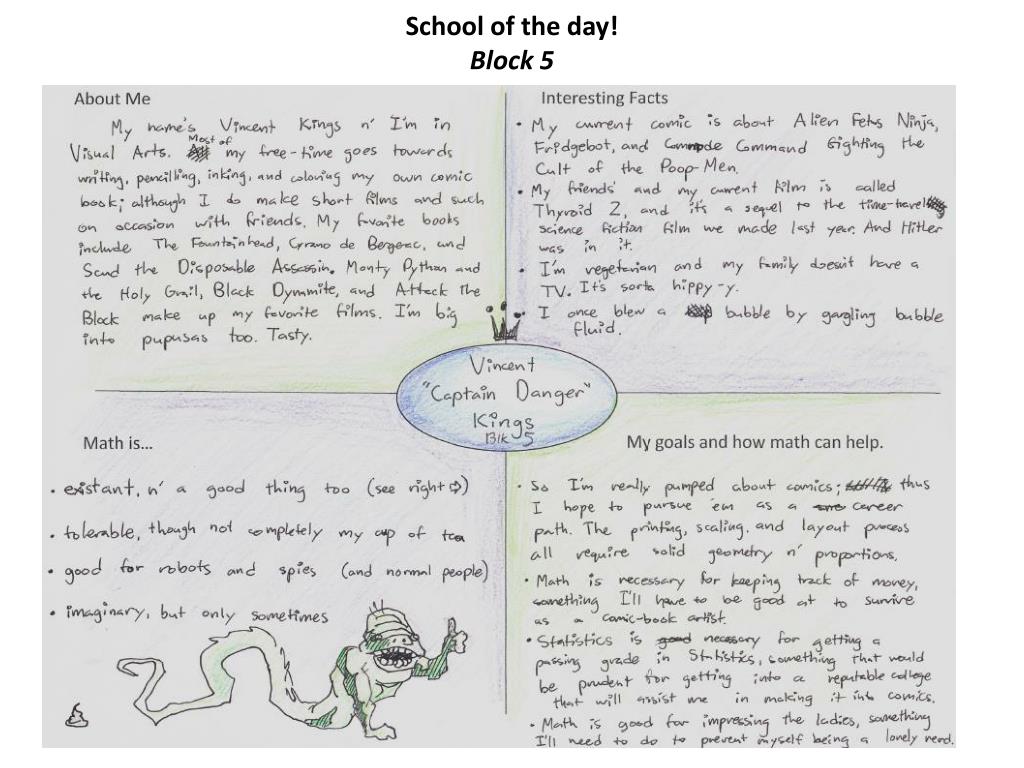 School of the day!
Block 5
About Me
My name's Vincent Kings n' I'm in
Visual Arts. Most of my free-time goes towards
writing, pencilling, inking, and coloring my own comic
book; although I do make short films and such
on occasion with friends. My favorite books
include The Fountainhead, Cyrano de Bergerac, and
Send the Disposable Assassin. Monty Python and
the Holy Grail, Black Dynamite, and Attack the
Block make up my favorite films. I'm big
into pupusas too. Tasty.
Interesting Facts
• My current comic is about Alien Fetus Ninja,
Fridgebot, and Commode Command fighting the
Cult of the Poop-Men.
• My friends' and my current film is called
Thyroid 2, and it's a sequel to the time-travel
science fiction film we made last year. And Hitler
was in it.
• I'm vegetarian and my family doesn't have a
TV. It's sorta hippy-y.
• I once blew a bubble by gargling bubble
fluid.
Vincent
"Captain Danger"
Kings
Blk 5
Math is...
• existant, n' a good thing too (see right ⇨)
• tolerable, though not completely my cup of tea
• good for robots and spies (and normal people)
• imaginary, but only sometimes
My goals and how math can help.
• So I'm really pumped about comics; thus
I hope to pursue 'em as a career
path. The printing, scaling, and layout process
all require solid geometry n' proportions.
• Math is necessary for keeping track of money,
something I'll have to be good at to survive
as a comic-book artist.
• Statistics is good necessary for getting a
passing grade in Statistics, something that would
be prudent for getting into a reputable college
that will assist me in making it into comics.
• Math is good for impressing the ladies, something
I'll need to do to prevent myself being a lonely nerd.